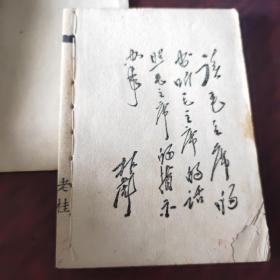 读毛主席的
书听毛主席的话
照毛主席的指示
办事
林彪
老桂